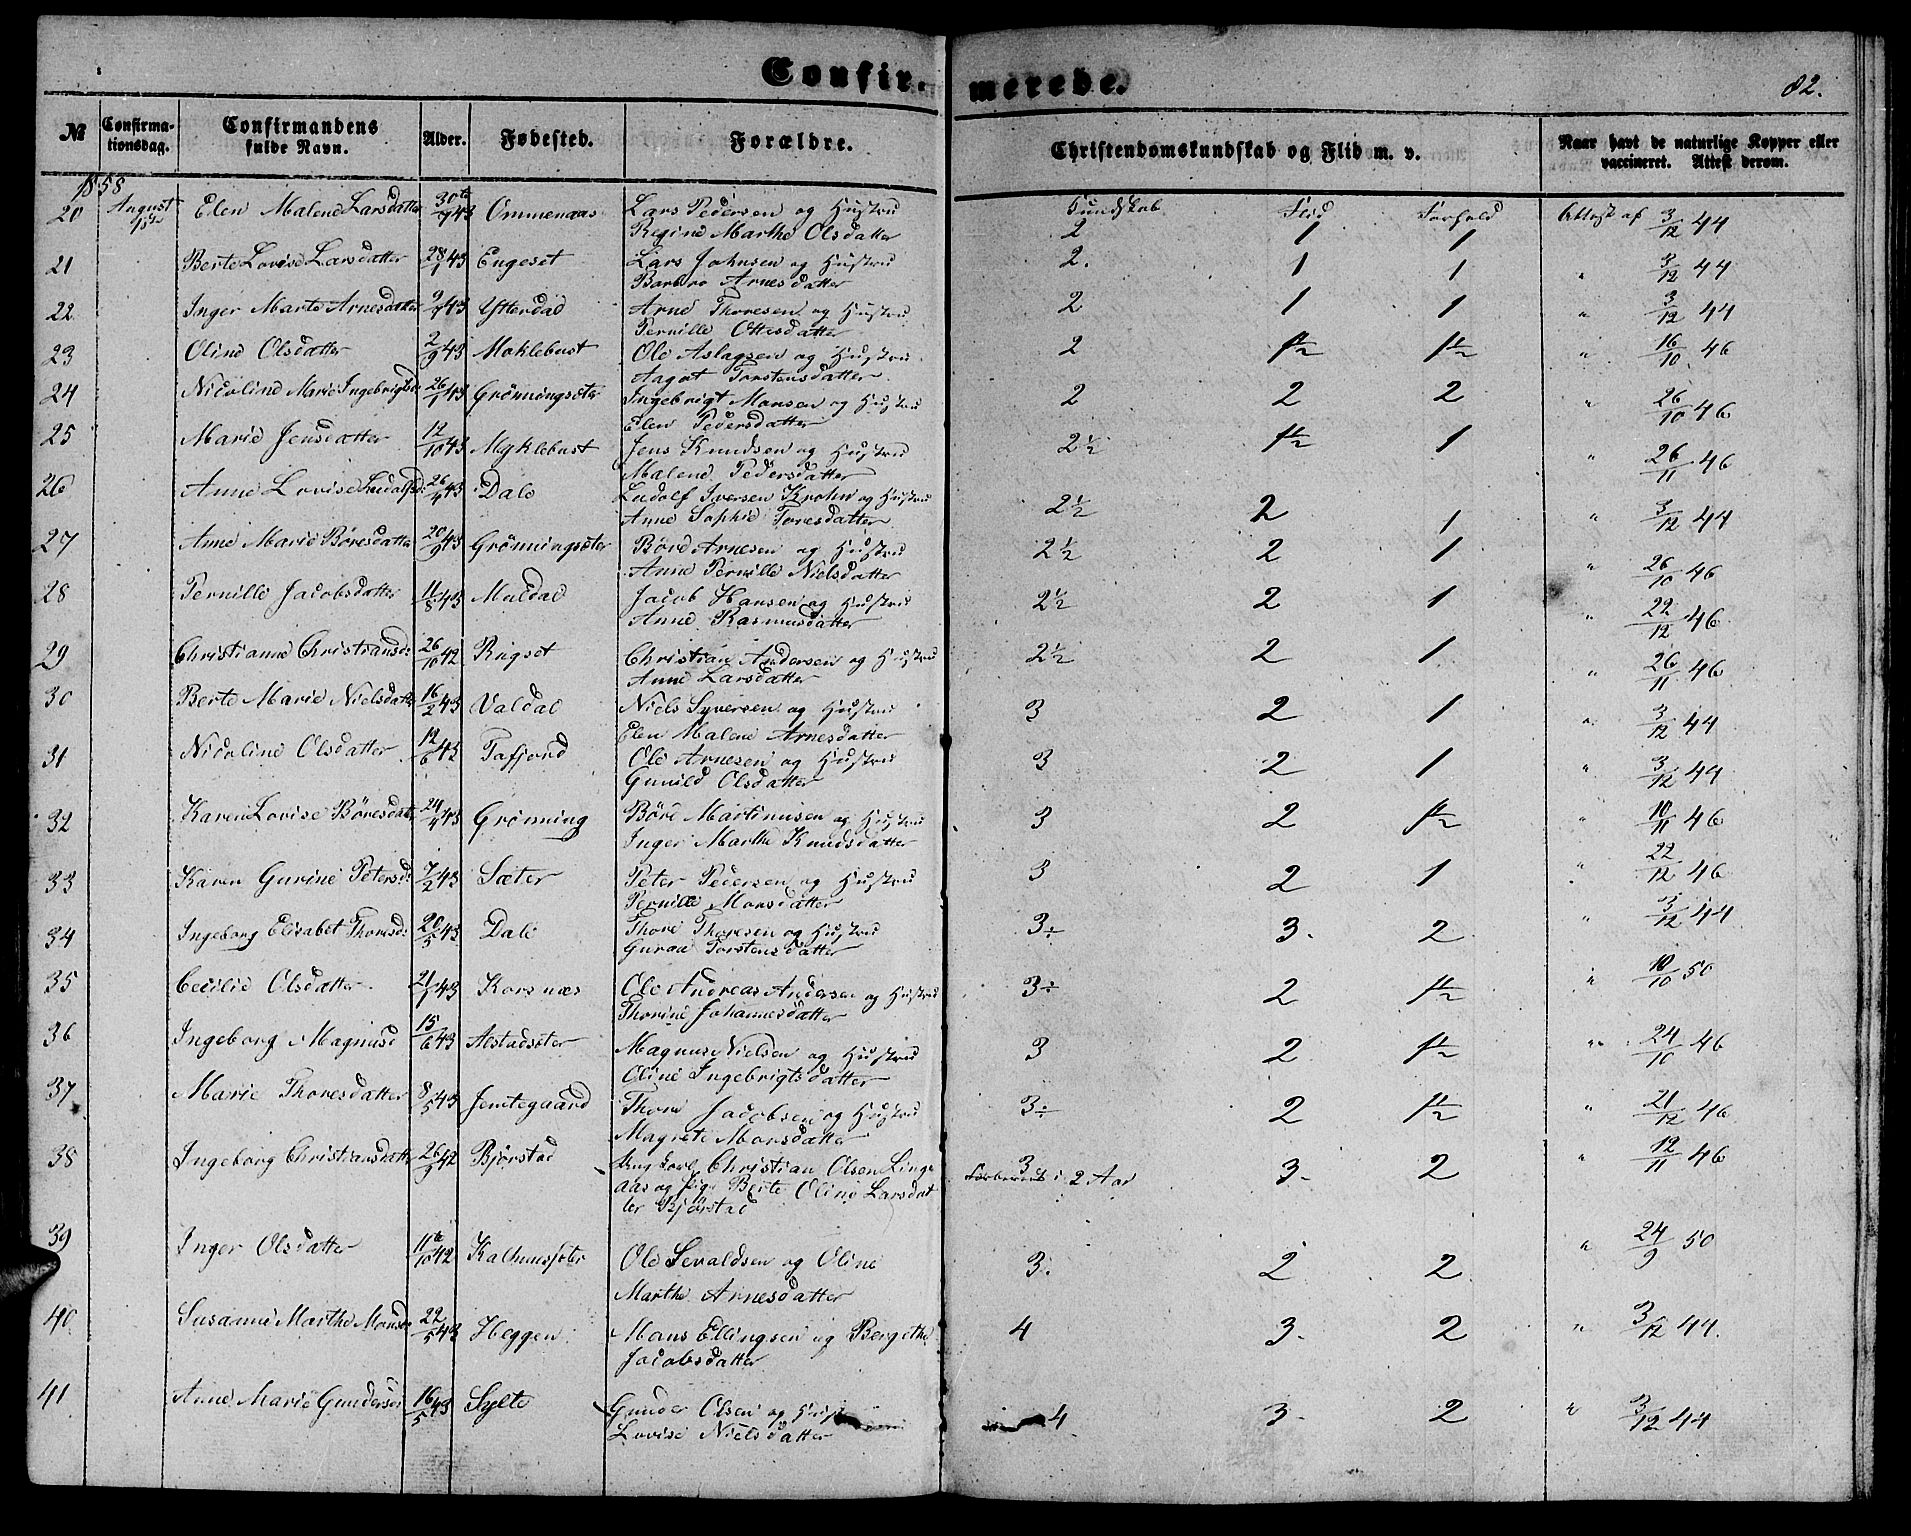 Confirmerede. 82.
№ Confirmationsdag. Confirmandens fulde Navn. Alder. Fødested. Forældre. Christendomskundskab og Flid m. v. Naar havt de naturlige Kopper eller vaccineret. Attest derom.
1858
20 August 15de Elen Malene Larsdatter 30te/7 43 Ommenaas Lars Pedersen og Hustru Kundskab Flid Forhold Attest af 3/12 44
Regine Marthe Olsdatter 2 1 1
21 Berte Lovise Larsdatter 28/1 43 Engeset Lars Johnsen og Hustru 2. 1 1 " 3/12 44
Barbro Arnesdatter
22 Inger Marte Arnesdatter 2/7 43 Ytterdal Arne Thoresen og Hustru 2 1 1 " 3/12 44
Pernille Ottesdatter
23 Oline Olsdatter 2/9 43 Moklebust Ole Aslagsen og Hustru 2 1½ 1½ " 16/10 46
Aagot Torstensdatter
24 Nicoline Marie Ingebrigtsd: 26/1 43 Grönningsæter Ingebrigt Monsen og Hustru 2 2 2 " 26/10 46
Elen Pedersdatter
25 Marie Jensdatter 12/10 43 Myklebust Jens Knudsen og Hustru 2½ 1½ 1 " 26/11 46
Malene Pedersdatter
26 Anne Lovise Ludolfsd: 26/4 43 Dale Ludolf Iversen Krohn og Hustru 2½ 2 1 " 3/12 44
Anne Sophie Toresdatter
27 Anne Marie Böresdatter 20/9 43 Grönningsæter Börd Arnesen og Hustru 2½ 2 1 " 26/10 46
Anne Pernille Nielsdatter
28 Pernille Jacobsdatter 11/8 43 Muldal Jacob Hansen og Hustru 2½ 2 1 " 22/12 46
Anne Rasmusdatter
29 Christianne Christiansd: 26/10 42 Rigset Christian Andersen og Hustru 2½ 2 1 " 26/11 46
Anne Larsdatter
30 Berte Marie Nielsdatter 16/2 43 Valdal Niels Syversen og Hustru 3 2 1 " 3/12 44
Elen Malene Arnesdatter
31 Nicoline Olsdatter 12/6 43 Tafjord Ole Arnesen og Hustru 3 2 1 " 3/12 44
Gunild Olsdatter
32 Karen Lovise Böresdatt 24/4 43 Grönning Böre Martinusen og Hustru 3 2 1½ " 10/11 46
Inger Marthe Knudsdatter
33 Karen Gurine Petersd: 7/2 43 Sæter Peter Pedersen og Hustru 3 2 1 " 22/12 46
Pernille Monsdatter
34 Ingeborg Elisabet Thoresd: 20/5 43 Dale Thore Thoresen og Hustru 3÷ 3. 2 " 3/12 44
Guroe Torstensdatter
35 Cecilie Olsdatter 21/1 43 Korsnæs Ole Andreas Andersen og Hustru 3÷ 2 1½ " 10/10 50
Thorine Johannesdatter
36 Ingeborg Magnusd 15/6 43 Alstadsæter Magnus Nielsen og Hustru 3 2. 1½ " 24/10 46
Oline Ingebrigtsdatter
37 Marie Thoresdatter 8/5 43 Jemtegaard Thore Jacobsen og Hustru 3÷ 2 1½ " 21/12 46
Magrete Monsdatter
38 Ingeborg Christiansdatter 26/9 42 Bjørstad Ung Karl Christian Olsen Linge 3 3. 2 " 12/11 46
aas og Pige Berte Oline Larsdat- Forberedt i 2 Aar
ter Bjørstad
39 Inger Olsdatter 11te/10 42 Kalhussæter Ole Sevaldsen og Oline 3. 2 2 " 24/9 50
Marthe Arnesdatter
40 Susanne Marthe Monsd: 22/5 43 Heggen Mons Ellingsen og Bergithe 4 3. 2 " 3/12 44.
Jacobsdatter
41 Anne Marie Gundersd: 16/5 43 Sylte Gunder Olsen og Hust 4. 3. 2 " 3/12 44
Lovise Nielsdatter